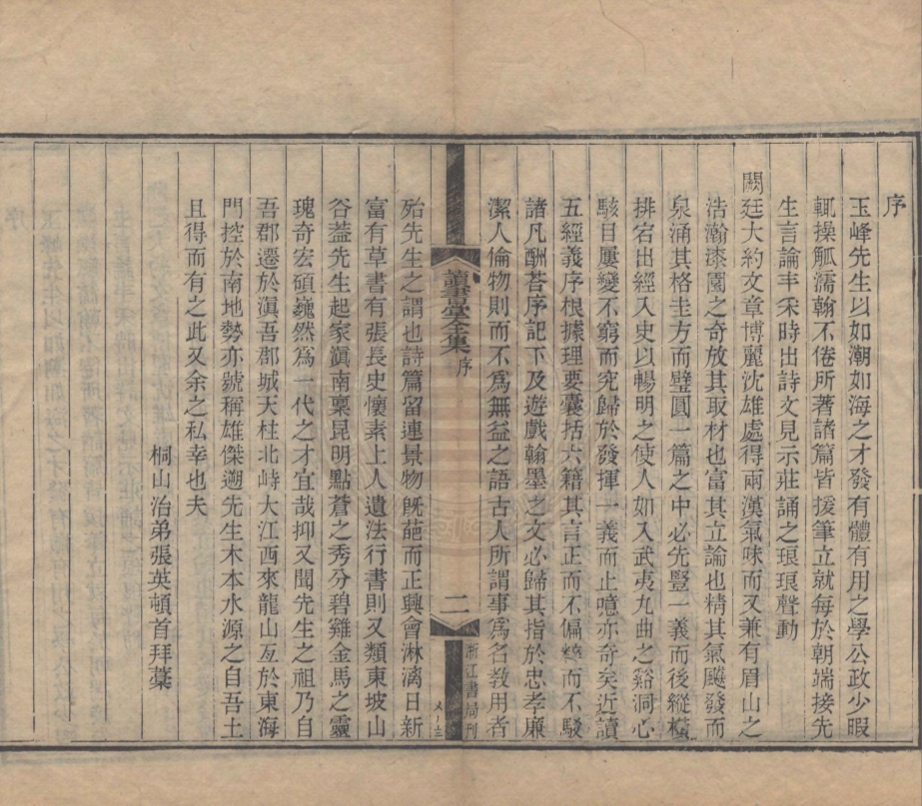 序
玉峰先生以如潮如海之才發有體有用之學公政少暇
輒操觚濡翰不倦所著諸篇皆援筆立就每於朝端接先
生言論丰采時出詩文見示莊誦之琅琅聲動
闕廷大約文章博麗沈雄處得兩漢氣味而又兼有眉山之
浩瀚漆園之奇放其取材也富其立論也精其氣飈發而
泉涌其格圭方而璧圓一篇之中必先豎一義而後縱橫
排宕出經入史以暢明之使人如入武夷九曲之谿洞心
駭目屢變不窮而究歸於發揮一義而止噫亦奇矣近讀
五經義序根據理要囊括六籍其言正而不偏 而不駁
諸凡酬荅序記下及遊戲翰墨之文必歸其指於忠孝廉
潔人倫物則而不爲無益之語古人所謂事爲名教用者
讀書堂全集
序
二
浙江書局刊
殆先生之謂也詩篇留連景物旣葩而正興會淋漓日新
富有草書有張長史懷素上人遺法行書則又類東坡山
谷葢先生起家滇南稟昆明點蒼之秀分碧雞金馬之靈
瑰奇宏碩巍然爲一代之才宜哉抑又聞先生之祖乃自
吾郡遷於滇吾郡城天柱北峙大江西來龍山亙於東海
門控於南地勢亦號稱雄傑遡先生木本水源之自吾土
且得而有之此又余之私幸也夫
桐山治弟張英頓首拜藁